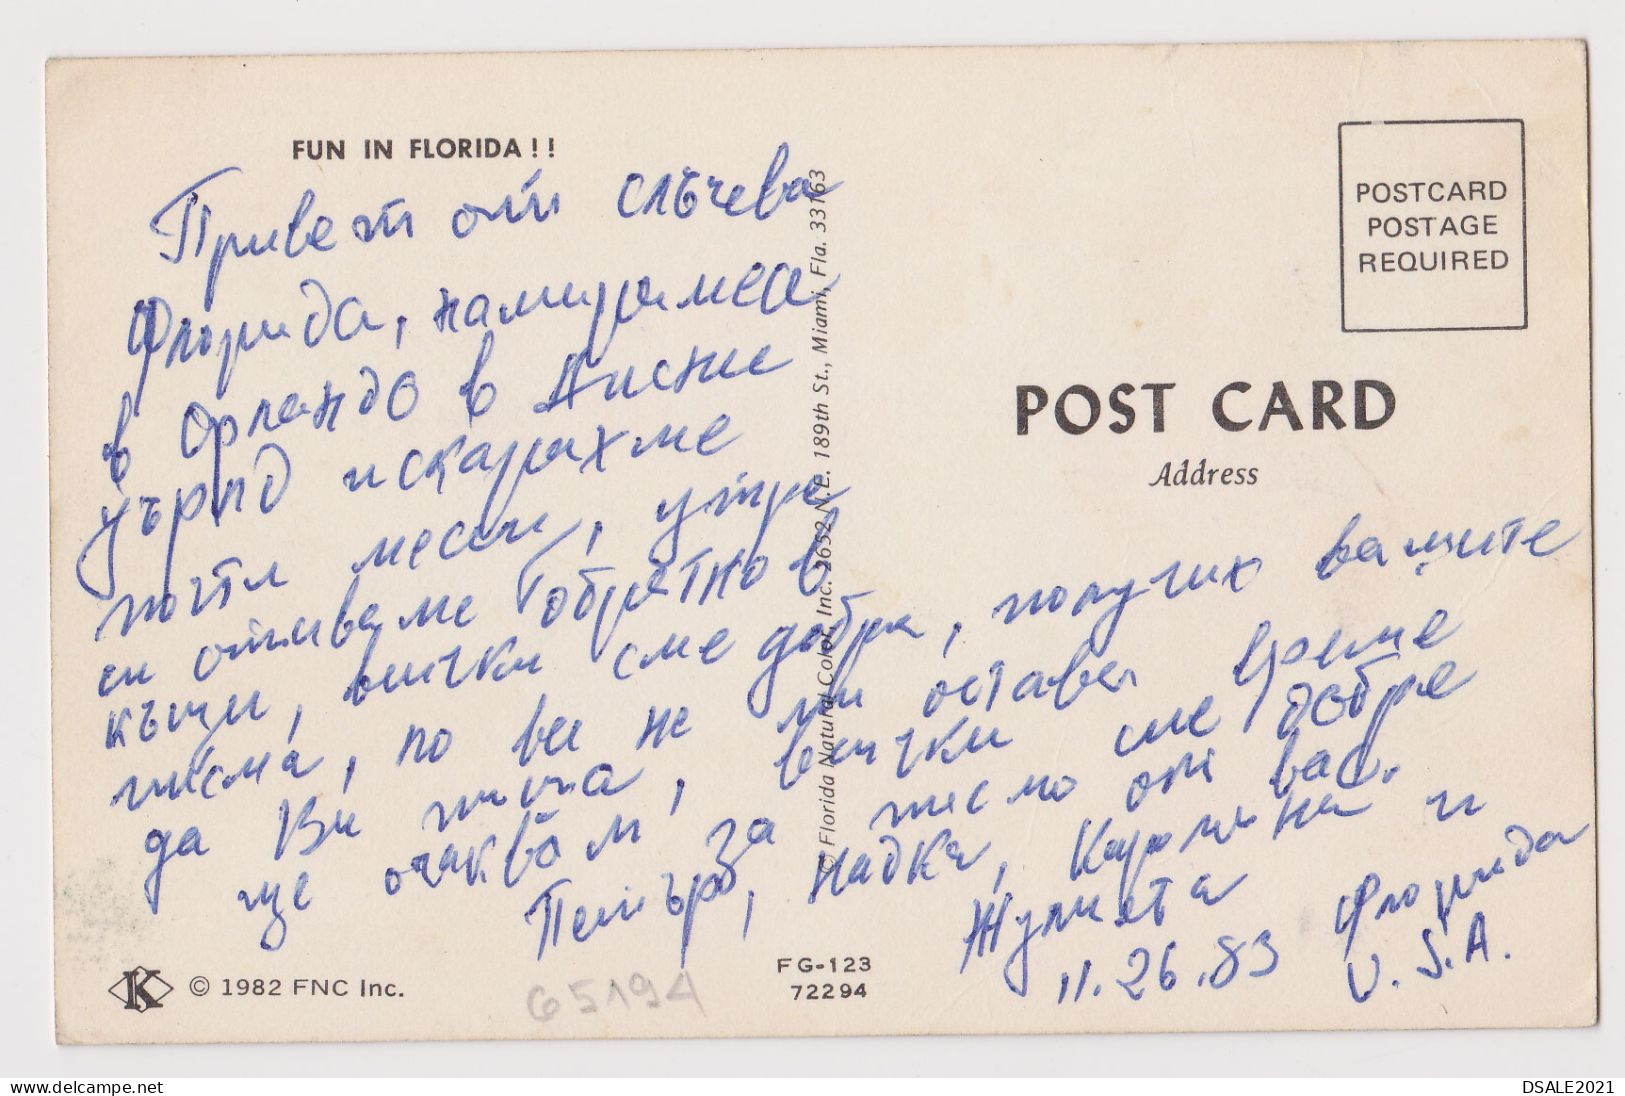 FUN IN FLORIDA!!
Привет от слъчева
Флорида, намираме са
в Орландо в Дисни
уърлд искарахме
почти месец, утре
си отиваме обратно в
къщи, всички сме добре, получих вашите
писма, но все не ми остава време
да Ви пиша, всички сме добре
ще очаквам за писмо от вас.
Петър, Надка, Карлина и
Жулиета
11.26.83 Флорида
U.S.A.
© Florida Natural Color, Inc. 2652 N.E. 189th St., Miami, Fla. 33163
POSTCARD
POSTAGE
REQUIRED
POST CARD
Address
K © 1982 FNC Inc.
G5194
FG-123
72294
www.delcampe.net
DSALE2021